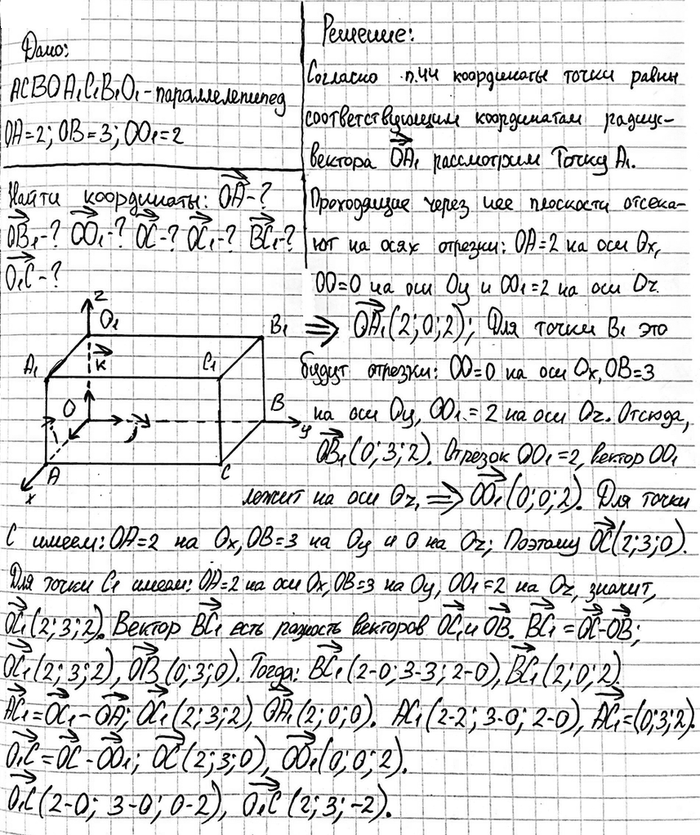 Дано:
ACBOA₁C₁B₁O₁ - параллелепипед
OA=2; OB=3; OO₁=2
Найти координаты: OA-?
OB₁-? OO₁-? OC-? OC₁-? BC₁-?
O₁C-?
Решение:
Согласно п.44 координаты точки равны
соответствующим координатам радиус-
вектора OA₁ рассмотрим Точку A₁.
Проходящие через нее плоскости отсека-
ют на осях отрезки: OA=2 на оси Ox,
OO=0 на оси Oy и OO₁=2 на оси Oz
⇒ OA₁(2;0;2); Для точки B₁ это
будут отрезки: OO=0 на оси Ox, OB=3
на оси Oy, OO₁=2 на оси Oz. Отсюда,
OB₁(0;3;2). Отрезок OO₁=2, вектор OO₁
лежит на оси Oz, ⇒ OO₁(0;0;2). Для точки
C имеем: OA=2 на Ox, OB=3 на Oy и 0 на Oz; Поэтому OC(2;3;0).
Для точки C₁ имеем: OA=2 на оси Ox, OB=3 на Oy, OO₁=2 на Oz, значит,
OC₁(2;3;2). Вектор BC₁ есть разность векторов OC₁ и OB. BC₁=OC-OB;
OC₁(2;3;2), OB(0;3;0). Тогда: BC₁(2-0;3-3;2-0), BC₁(2;0;2).
AC₁=OC₁-OA; OC₁(2;3;2), OA₁(2;0;0). AC₁(2-2;3-0;2-0), AC₁=(0;3;2).
O₁C=OC-OO₁; OC(2;3;0), OO₁(0;0;2).
O₁C(2-0; 3-0; 0-2), O₁C(2;3;-2).
z
O₁
B₁
A₁
C₁
k
O
B
j
y
A
C
x